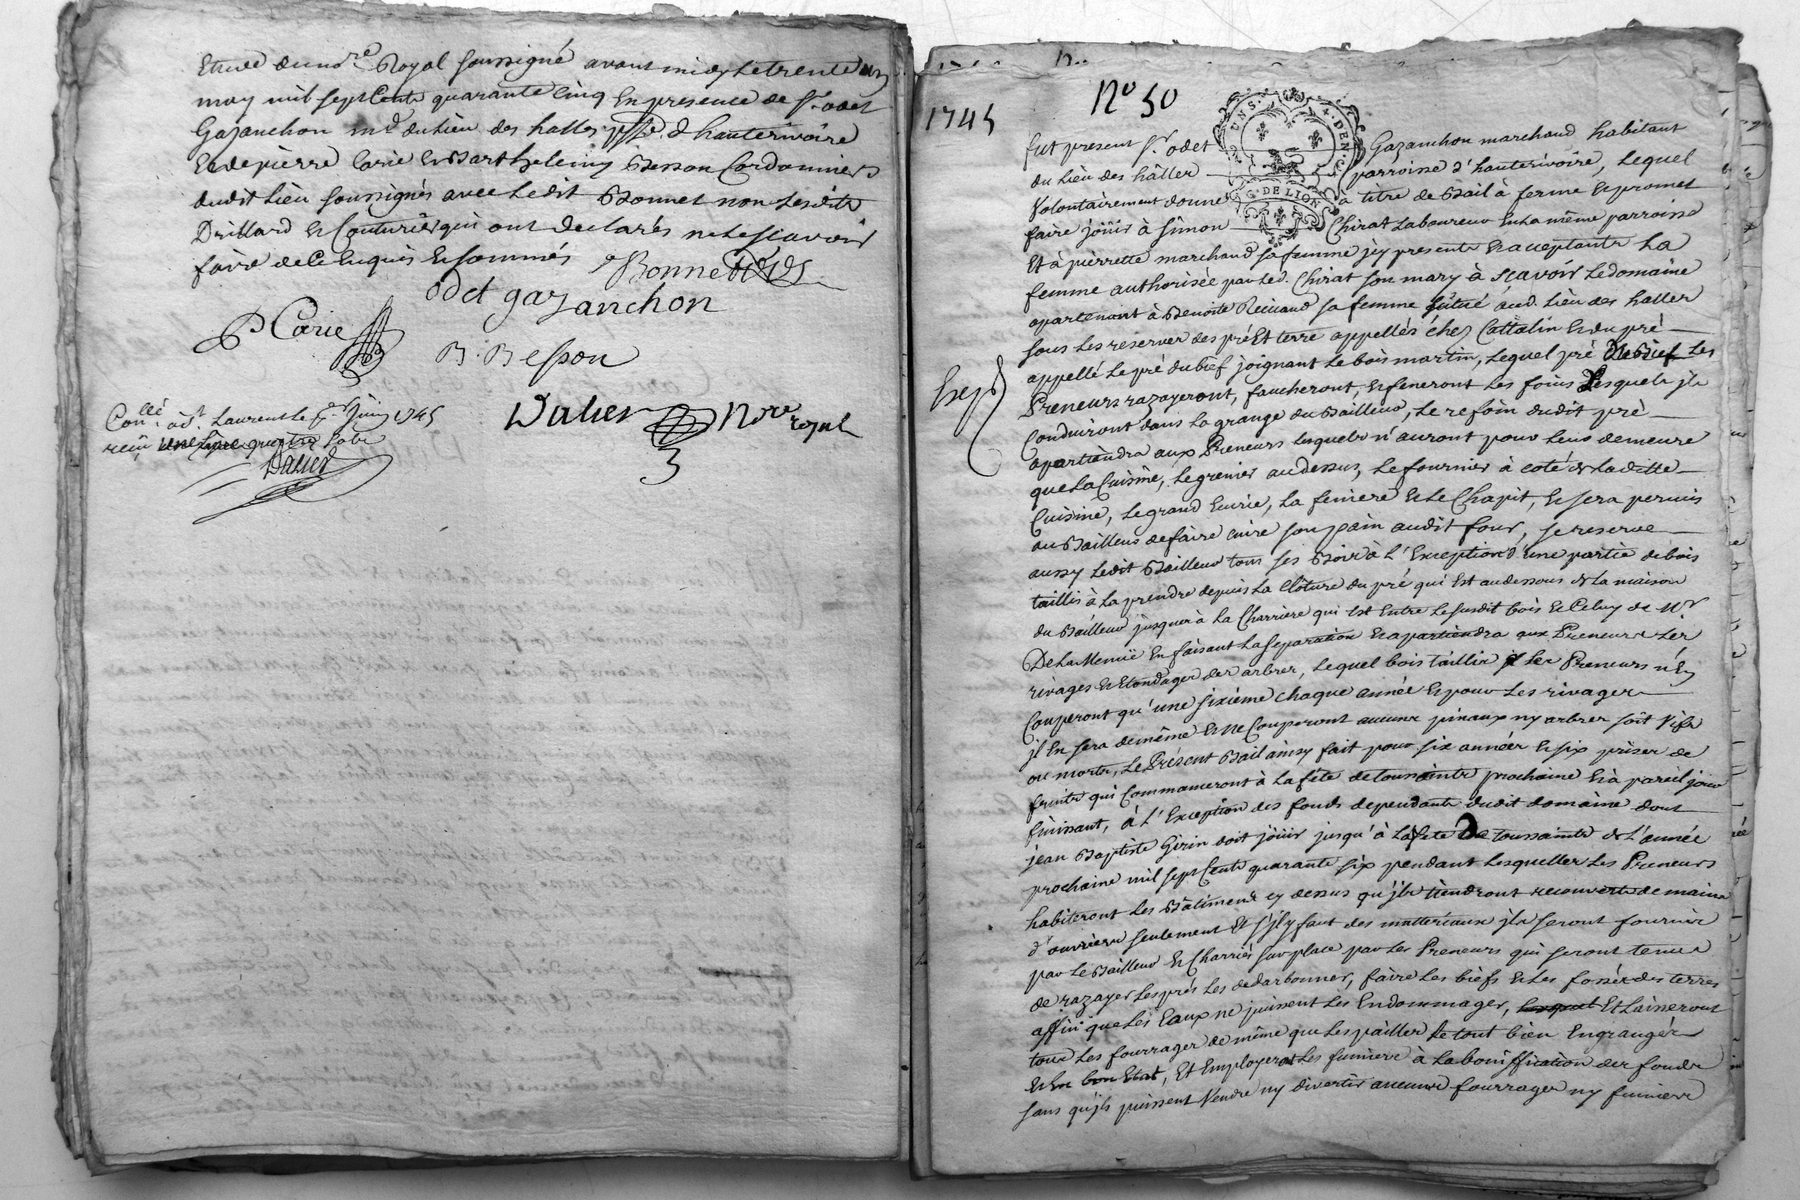 Etude du no.re Royal soussigné avant midy le trente un
may mil sept Cents quarante Cinq En presence de Sr. odet
Gazanchon md. du Lieu des halles psse. d'hauterivoire
Et de pierre Carie Et Barthelemy Besson Cordonniers
dudit Lieu soussignés avec Ledit Bonnet non Lesdits
Drillard Et Couturier qui ont declarés ne le scavoir
faire de Ce Enquis Et sommés Bonnet
odet gazanchon
P Carie
B. Besson
Dalier Nore. royal
Con.llé à St. Laurent le juin 1745
reçu une livre quatre sols
Dalier
1745
No 50
GÉN. DE LION
fut present Sr. odet Gazanchon marchand habitant
du Lieu des hâlles parroisse d'hauterivoire, Lequel
Volontairement donne à titre de Bail à ferme Et promet
faire joüir à simon Chirat Laboureur En La même parroisse
Et à pierrette marchand sa femme jcy presents Et acceptants La
femme authorisée par Led. Chirat son mary à Scavoir Le domaine
apartenant à Benoite Reinaud sa femme situé aud. Lieu des halles
sous Les reserves des pré Et terre appellés chez Cattalin Et du pré
appellé Le pré du bief joignant Le bois martin, Lequel pré Les
Preneurs razayeront, faucheront, Et feneront Les foins desquels jls
Conduiront dans La grange du Bailleur, Le refoin dudit pré
apartiendra aux Preneurs Lesquels n'auront pour Leur demeure
que La Cuisine, Le grenier au dessus, Le fournier à coté de Laditte
Cuisine, Le grand Ecurie, La feniere Et Le Chapit, Et sera permis
au Bailleur de faire cuire son pain audit four, se reserve
aussy Ledit Bailleur tous ses Bois à L'Exception d'une partie de bois
taillis à La prendre depuis La Clôture du pré qui Est au dessous de La maison
du Bailleur jusques à La Charriere qui Est Entre Le susdit bois Et Celuy de Mr
De La Menüe En faisant La separation Et apartiendra aux Preneurs Les
rivages Et Etondages des arbres, Lequel bois taillis Les Preneurs n'En
Couperont qu'une sixieme chaque année Et pour Les rivages
jl En sera de même Et ne Couperont aucuns pinaux ny arbres soit Vifs
ou morts, Le Présent Bail ainsy fait pour six années Et six prises de
fruits qui Commanceront à La fête de toussaints prochaine Et à pareil jour
finissant, à L'Exception des fonds dependants dudit domaine dont
jean Baptiste Girin doit joüir jusqu'à La fete de toussaints de L'année
prochaine mil sept Cents quarante six pendant Lesquelles Les Preneurs
habiteront Les Bâtiments cy dessus qu'jls tiendront recouverts de mains
d'ouvriers seulement Et s'jl y faut des matteriaux jls seront fournis
par Le Bailleur Et Charriés sur place par Les Preneurs qui seront tenus
de razayer Les prés Les dedarbonner, faire Les biefs Et Les fossés des terres
affin que Les Eaux ne puissent Les Endommager, Et Laisseront
tous Les fourrages de même que Les pailles Le tout bien Engrangés
Et En bon Etat, Et Employeront Les fumiers à La boniffication des fonds
sans qu'jls puissent Vendre ny divertir aucuns fourrages ny fumiers